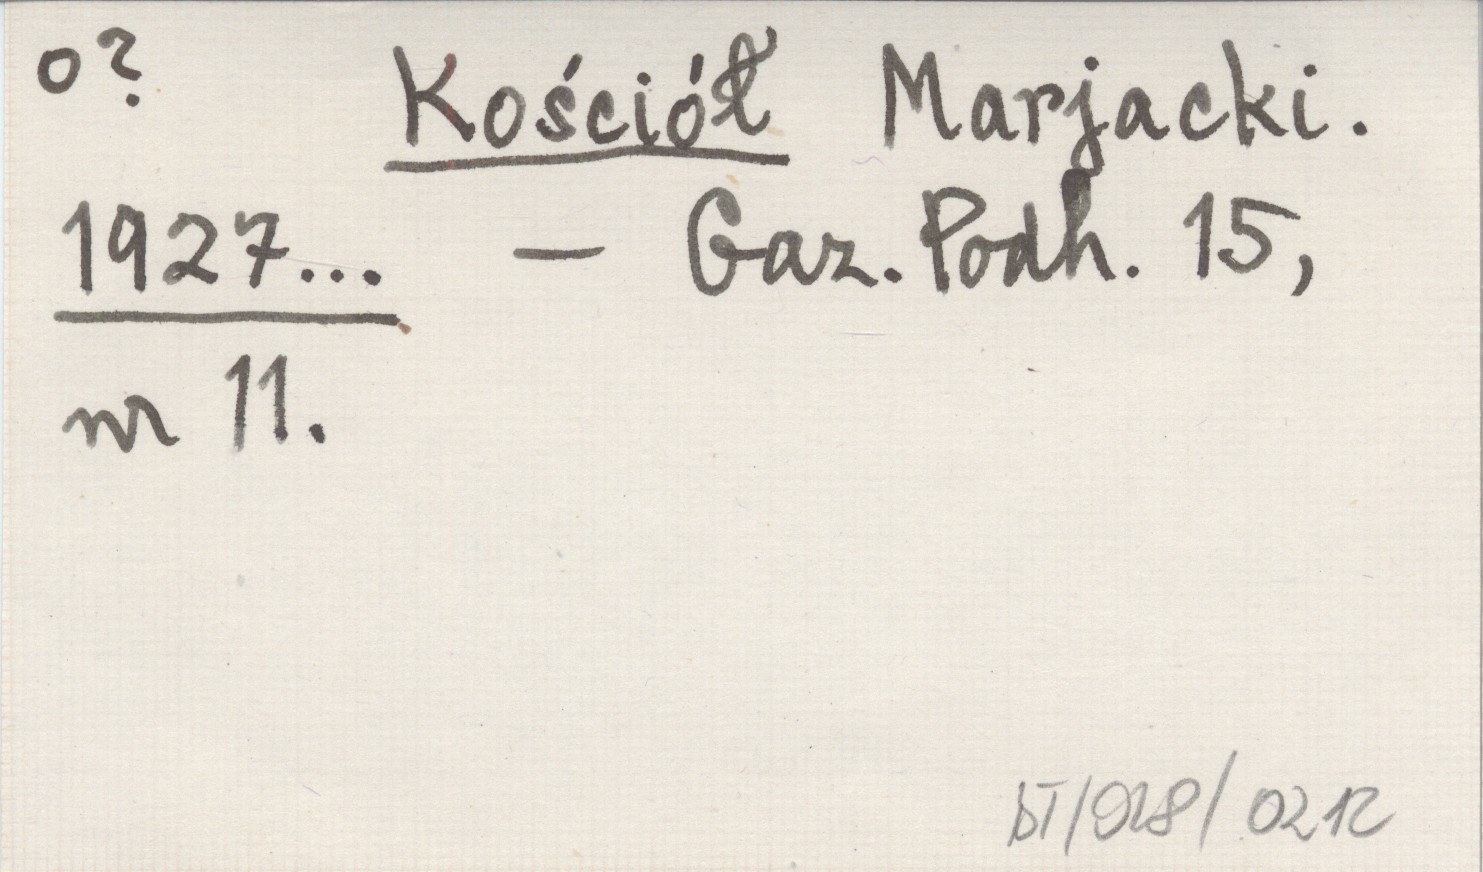 o?
Kościół Marjacki.
1927... — Gaz. Podh. 15,
nr 11.
0212